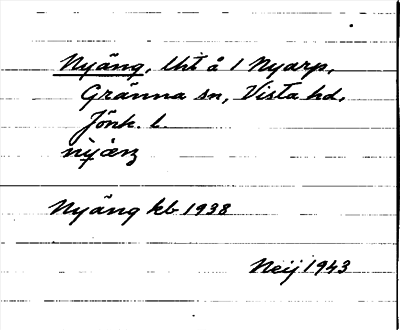 Nyäng, lht å 1 Nyarp,
Gränna sn, Vista hd,
Jönk. l.
Nyäng kb 1938
Neij 1943